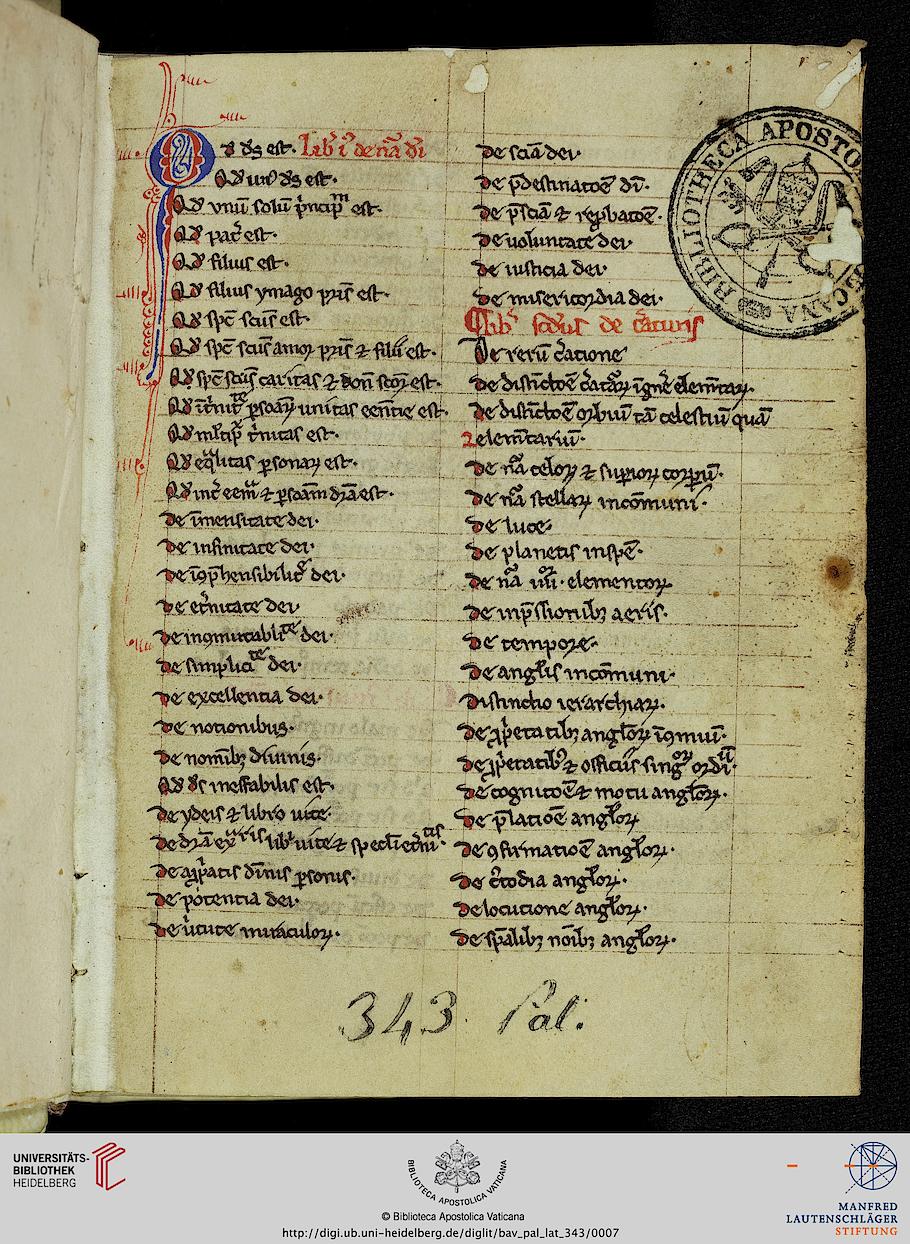 Qd ds est. Lib' i' de na di
Qd un' ds est.
Qd vnu solu pncip est.
Qd pat' est.
Qd filius est.
Qd filius ymago pris est.
Qd spc scus est.
Qd spc scus amor pris & filii est.
Qd spc scus caritas & don scor est.
unitas eentie est.
Qd tnitas est.
Qd eqlitas psonar est.
Qd int' eem & dra est.
de imensitate dei.
de infinitate dei.
de icphensibilit' dei.
de et'nitate dei.
de incmutabilite dei.
de simplicite dei.
de excellentia dei.
de notionibus.
de noib' diuinis.
Qd ds ineffabilis est.
de ydeis & libro uite.
de dra lib' uite & specli et'ni
de appatis diuis psonis.
de potentia dei.
de u'tute miraculor.
de scia dei.
de pdestinatoe di.
de pscia & repbatoe.
de uoluntate dei.
de iusticia dei.
de misericordia dei.
Lib' scdus de c'aturis
De reru c'atione
de distictoe c'atar elemtar.
de distictoe orbiu ta celestiu qua
& elemtariu.
de na celor & supior corpu.
de na stellar incomuni.
de luce.
de planetis inspe.
de na iiii. elementor
de impssionib' aeris.
de tempore.
de anglis incomuni.
distinctio ierarchiar.
de ppetatib' anglor icmuni.
de ppetatib' & officiis singlor ordiu.
de cognitoe & motu anglor.
de platioe anglor
de cfirmatioe anglor.
de c'todia anglor.
de locutione anglor.
de spalib' noib' anglor.
BIBLIOTHECA APOSTO CANA
343. Pal.
UNIVERSITÄTS-
BIBLIOTHEK
HEIDELBERG
BIBLIOTECA APOSTOLICA VATICANA
© Biblioteca Apostolica Vaticana
http://digi.ub.uni-heidelberg.de/diglit/bav_pal_lat_343/0007
MANFRED
LAUTENSCHLÄGER
STIFTUNG